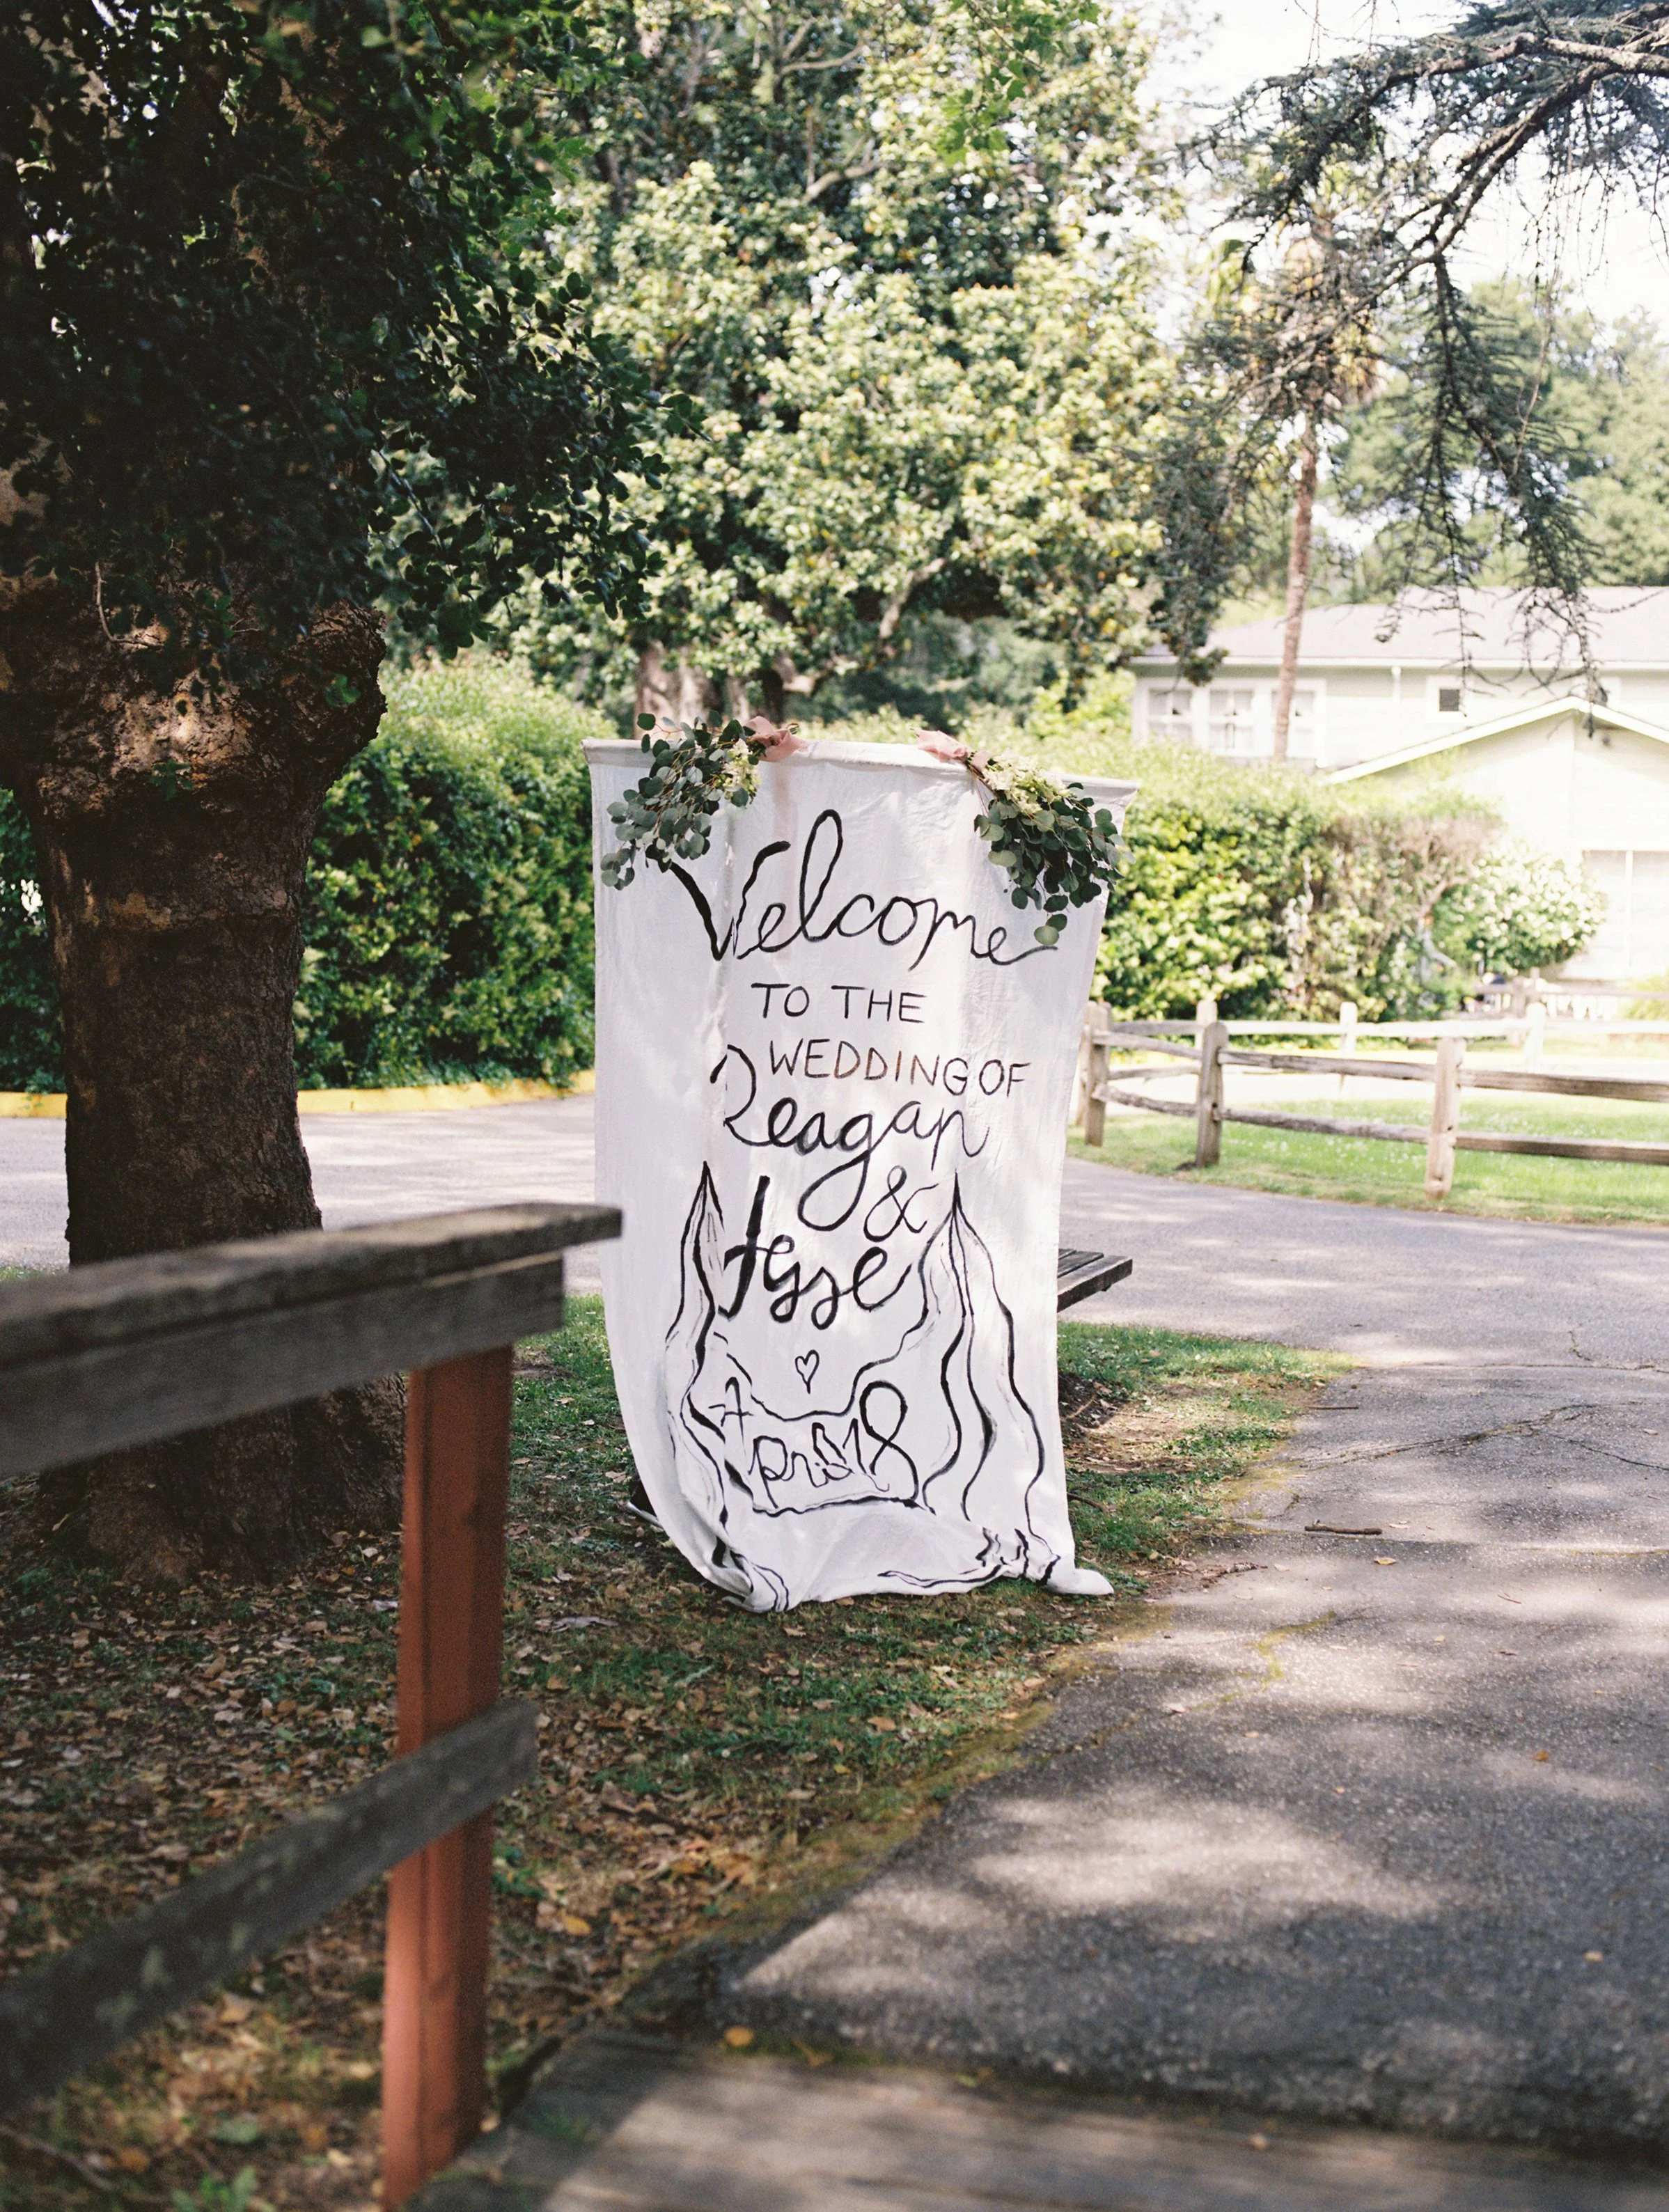 Welcome
TO THE
WEDDING OF
Reagan
&
Jesse
April 18